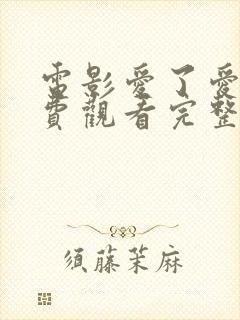 電影愛了愛
費觀看完整
須藤茉麻